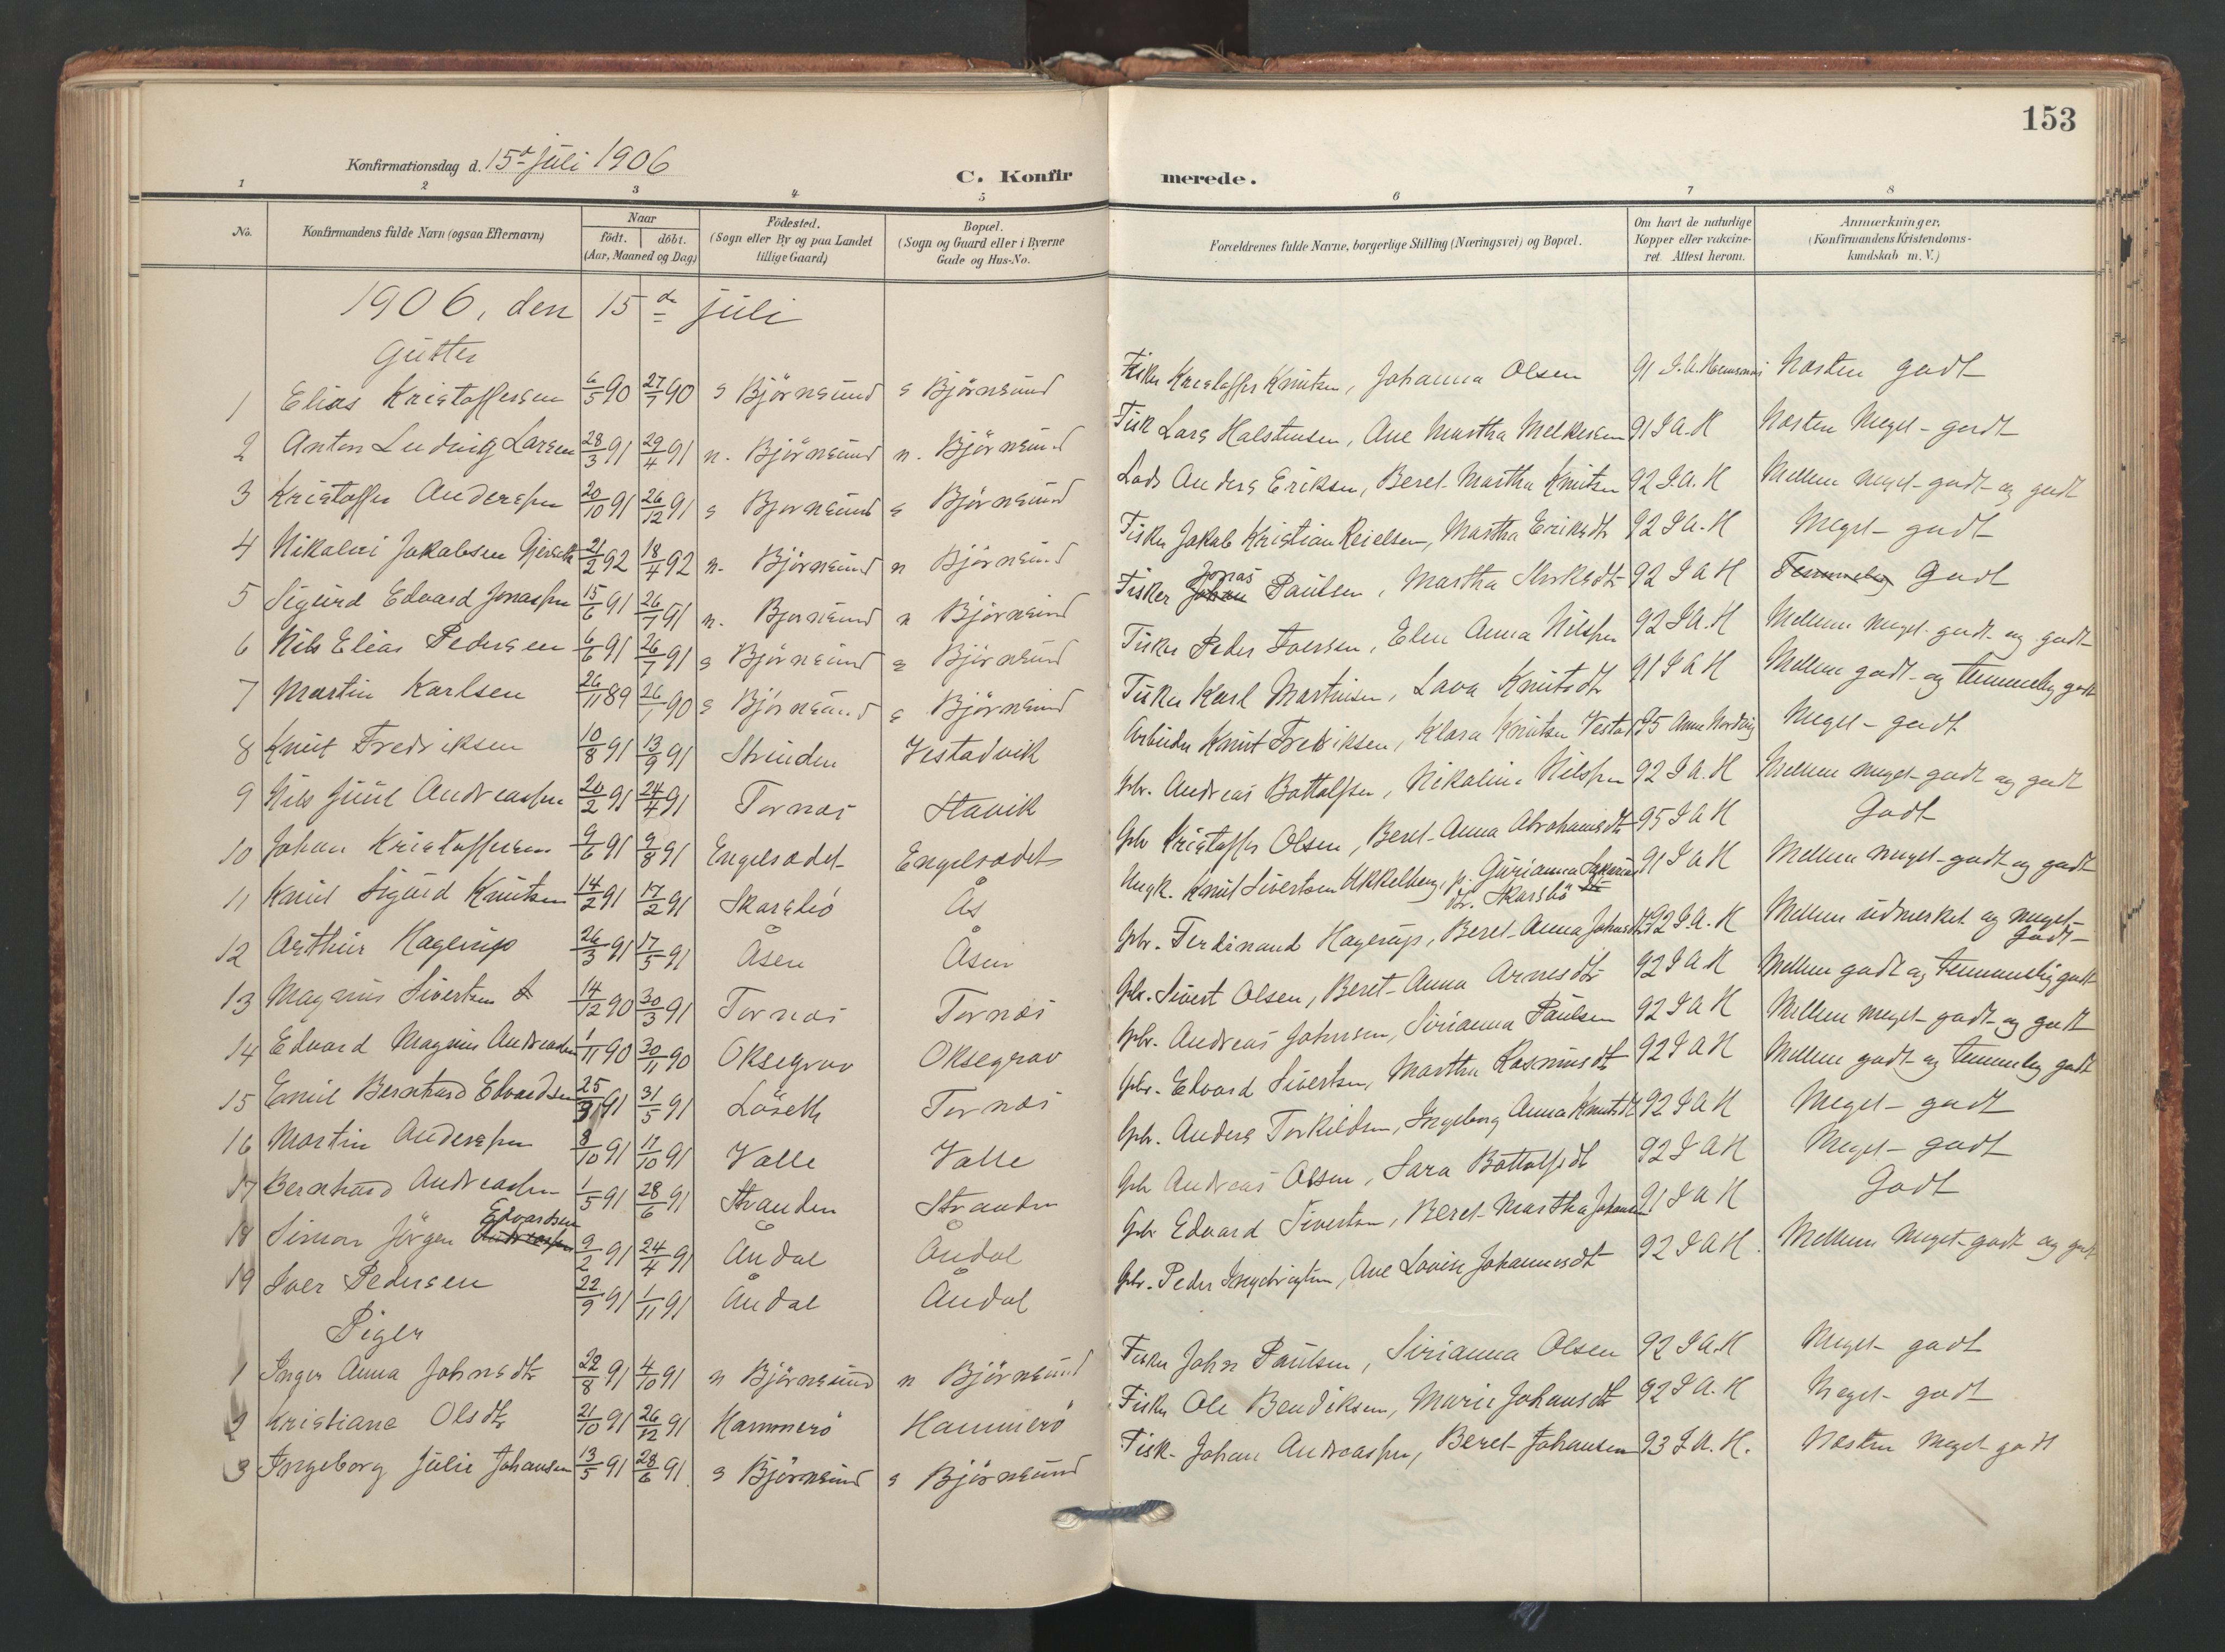 153
Konfirmationsdag d. 15de Juli 1906
C. Konfirmerede.
1 2 3 4 5 6 7 8
No. Konfirmandens fulde Navn (ogsaa Efternavn) Naar födt. döbt. (Aar, Maaned og Dag) Födested. (Sogn eller By og paa Landet tillige Gaard) Bopæl. (Sogn og Gaard eller i Byerne Gade og Hus-No. Forældrenes fulde Navne, borgerlige Stilling (Næringsvei) og Bopæl. Om havt de naturlige Kopper eller vakcineret. Attest herom. Anmærkninger, (Konfirmandens Kristendomskundskab m. V.)
1906, den 15de Juli
Gutter
1 Elias Kristoffersen 6/5 90 27/7 90 s Björnsund s Björnsund Fisker Kristoffer Knutsen, Johanna Olsen 91 I. A. Næsten godt
2 Anton Ludvig Larsen 28/3 91 29/4 91 n. Björnsund n. Björnsund Fisk Lars Halstensen, Ane Martha Melkersen 91 I A. H Næsten Meget godt
3 Kristoffer Anderssen 20/10 91 26/12 91 s Bjornsund s Björnsund Lods Anders Eriksen, Beret Martha Knutsen 92 I. A. H Mellem meget godt og godt
4 Nikolai Jakobsen 21/2 92 18/4 92 n. Björnsund n Björnsund Fisker Jakob Kristian Reielsen, Martha Eriksdtr 92 I A. H Meget godt
5 Sigurd Edvard Jonassen 15/6 91 26/7 91 n. Bjornsund n Björnsund Fisker Johan Jonas Paulsen, Martha 92 I A H Temmelig Godt
6 Nils Elias Pedersen 6/6 91 26/7 91 s Björnsund s Björnsund Fisker Peder Iversen, Elen Anna Nilssen 92 I A. H Mellem meget godt og godt
7 Martin Karlsen 26/11 89 26/1 90 s Björnsund s Björnsund Fisker Karl Martinsen, Lava Knutsdtr 91 I A H Mellem godt og temmelig godt
8 Knut Fredriksen 10/8 91 13/9 91 Strinden Vestadvik Arbeider Knut Fredriksen, Klara Knutsen Vestad 95 Anne Meget godt
9 Nils Juul Andreassen 20/2 91 24/4 91 Tornæs Stavik Gbr. Andreas Bottolfsen, Nikoline Nilssen 92 I A. H Mellem meget godt og godt
10 Johan Kristoffersen 9/6 91 9/8 91 Engelsædet Engelsædet Gbr Kristoffer Olsen, Beret Anna Abrahamsdtr 95 I A H Godt
11 Knut Sigurd Knutsen 14/2 91 17/2 91 Skarsbö Ås Ungk. Knut Sivertsen Ukkelberg, p. Gurianna dtr. Skarsbö 91 I A H Mellem meget godt og godt
12 Arthur Hagerup 26/3 91 17/5 91 Åsen Åsen Gbr. Ferdinand Hagerup, Beret Anna Johnsdtr 92 I. A. H Mellem udmerket og meget godt
13 Magnus Sivertsen 14/12 90 30/3 91 Tornæs Tornæs Gbr. Sivert Olsen, Beret Anna Arnesdtr 92 I A H Mellem godt og temmelig godt
14 Edvard Magnus Andreassen 1/11 90 30/11 90 Oksegrov Oksegrov Gbr. Andreas Johnsen, Sirianna Paulsen 92 I A H Mellem meget godt og godt
15 Emil Bernhard Edvardsen 25/3 91 31/5 91 Löseth Tornæs Gbr. Edvard Sivertsen, Martha Rasmusdtr 92 I A H Mellem godt og temmelig godt
16 Martin Anderssen 8/10 91 11/10 91 Valle Valle Gbr. Anders Torkildsen, Ingeborg Anna Knutsdtr 92 I A H Meget godt
17 Bernhard Andreassen 1/5 91 28/6 91 Stranden Stranden Gbr Andreas Olsen, Sara Bottolfsdt 92 I A H Meget godt
18 Simon Jörgen Andreassen Edvardsen 9/2 91 24/4 91 Åndal Åndal Gbr Edvard Sivertsen, Beret Martha 91 I A H Godt
19 Iver Pedersen 22/9 91 1/11 91 Åndal Åndal Gbr. Peder Ingebrigtsen, Ane Lovise Johannesdt 92 I A H. Mellem Meget godt og godt
Piger
1 Inger Anna Johnsdtr 22/8 91 4/10 91 n Björnsund n Björnsund Fisker John Paulsen, Sirianna Olsen 92 I A. H Meget godt
2 Kristiane Olsdtr 21/10 91 26/12 91 Hammerö Hammerö Fisker Ole Bendiksen, Marie Johansdt 92 I A. H Meget godt
3 Ingeborg Julie Johansen 13/5 91 28/6 91 s Björnsund s Björnsund Fisk. Johan Andreassen, Beret Johansen 93 I. A. H. Næsten Meget godt